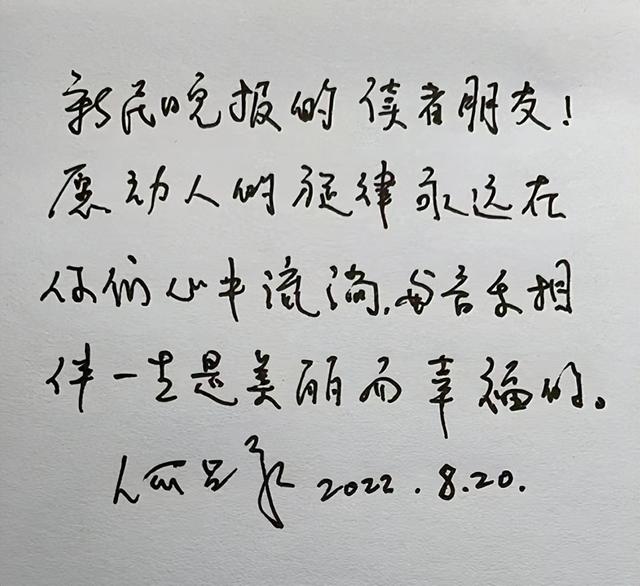 新民晚报的读者朋友！
愿动人的旋律永远在
你们心中流淌,与音乐相
伴一生是美丽而幸福的。
何占豪 2022.8.20.